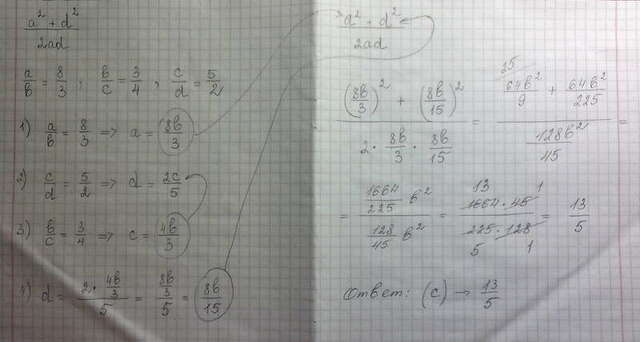 a² + d²
2ad
a/b = 8/3 ; b/c = 3/4 ; c/d = 5/2
1) a/b = 8/3 => a = 8b/3
2) c/d = 5/2 => d = 2c/5
3) b/c = 3/4 => c = 4b/3
4) d = (2 · 4b/3)/5 = (8b/3)/5 = 8b/15
a² + d²
2ad
((8b/3)² + (8b/15)²)/(2 · 8b/3 · 8b/15) = (64b²/9 + 64b²/225)/(128b²/45) =
25
= (1664/225 b²)/(128/45 b²) = (1664 · 45)/(225 · 128) = 13/5
13 1
5 1
Ответ: (c) → 13/5